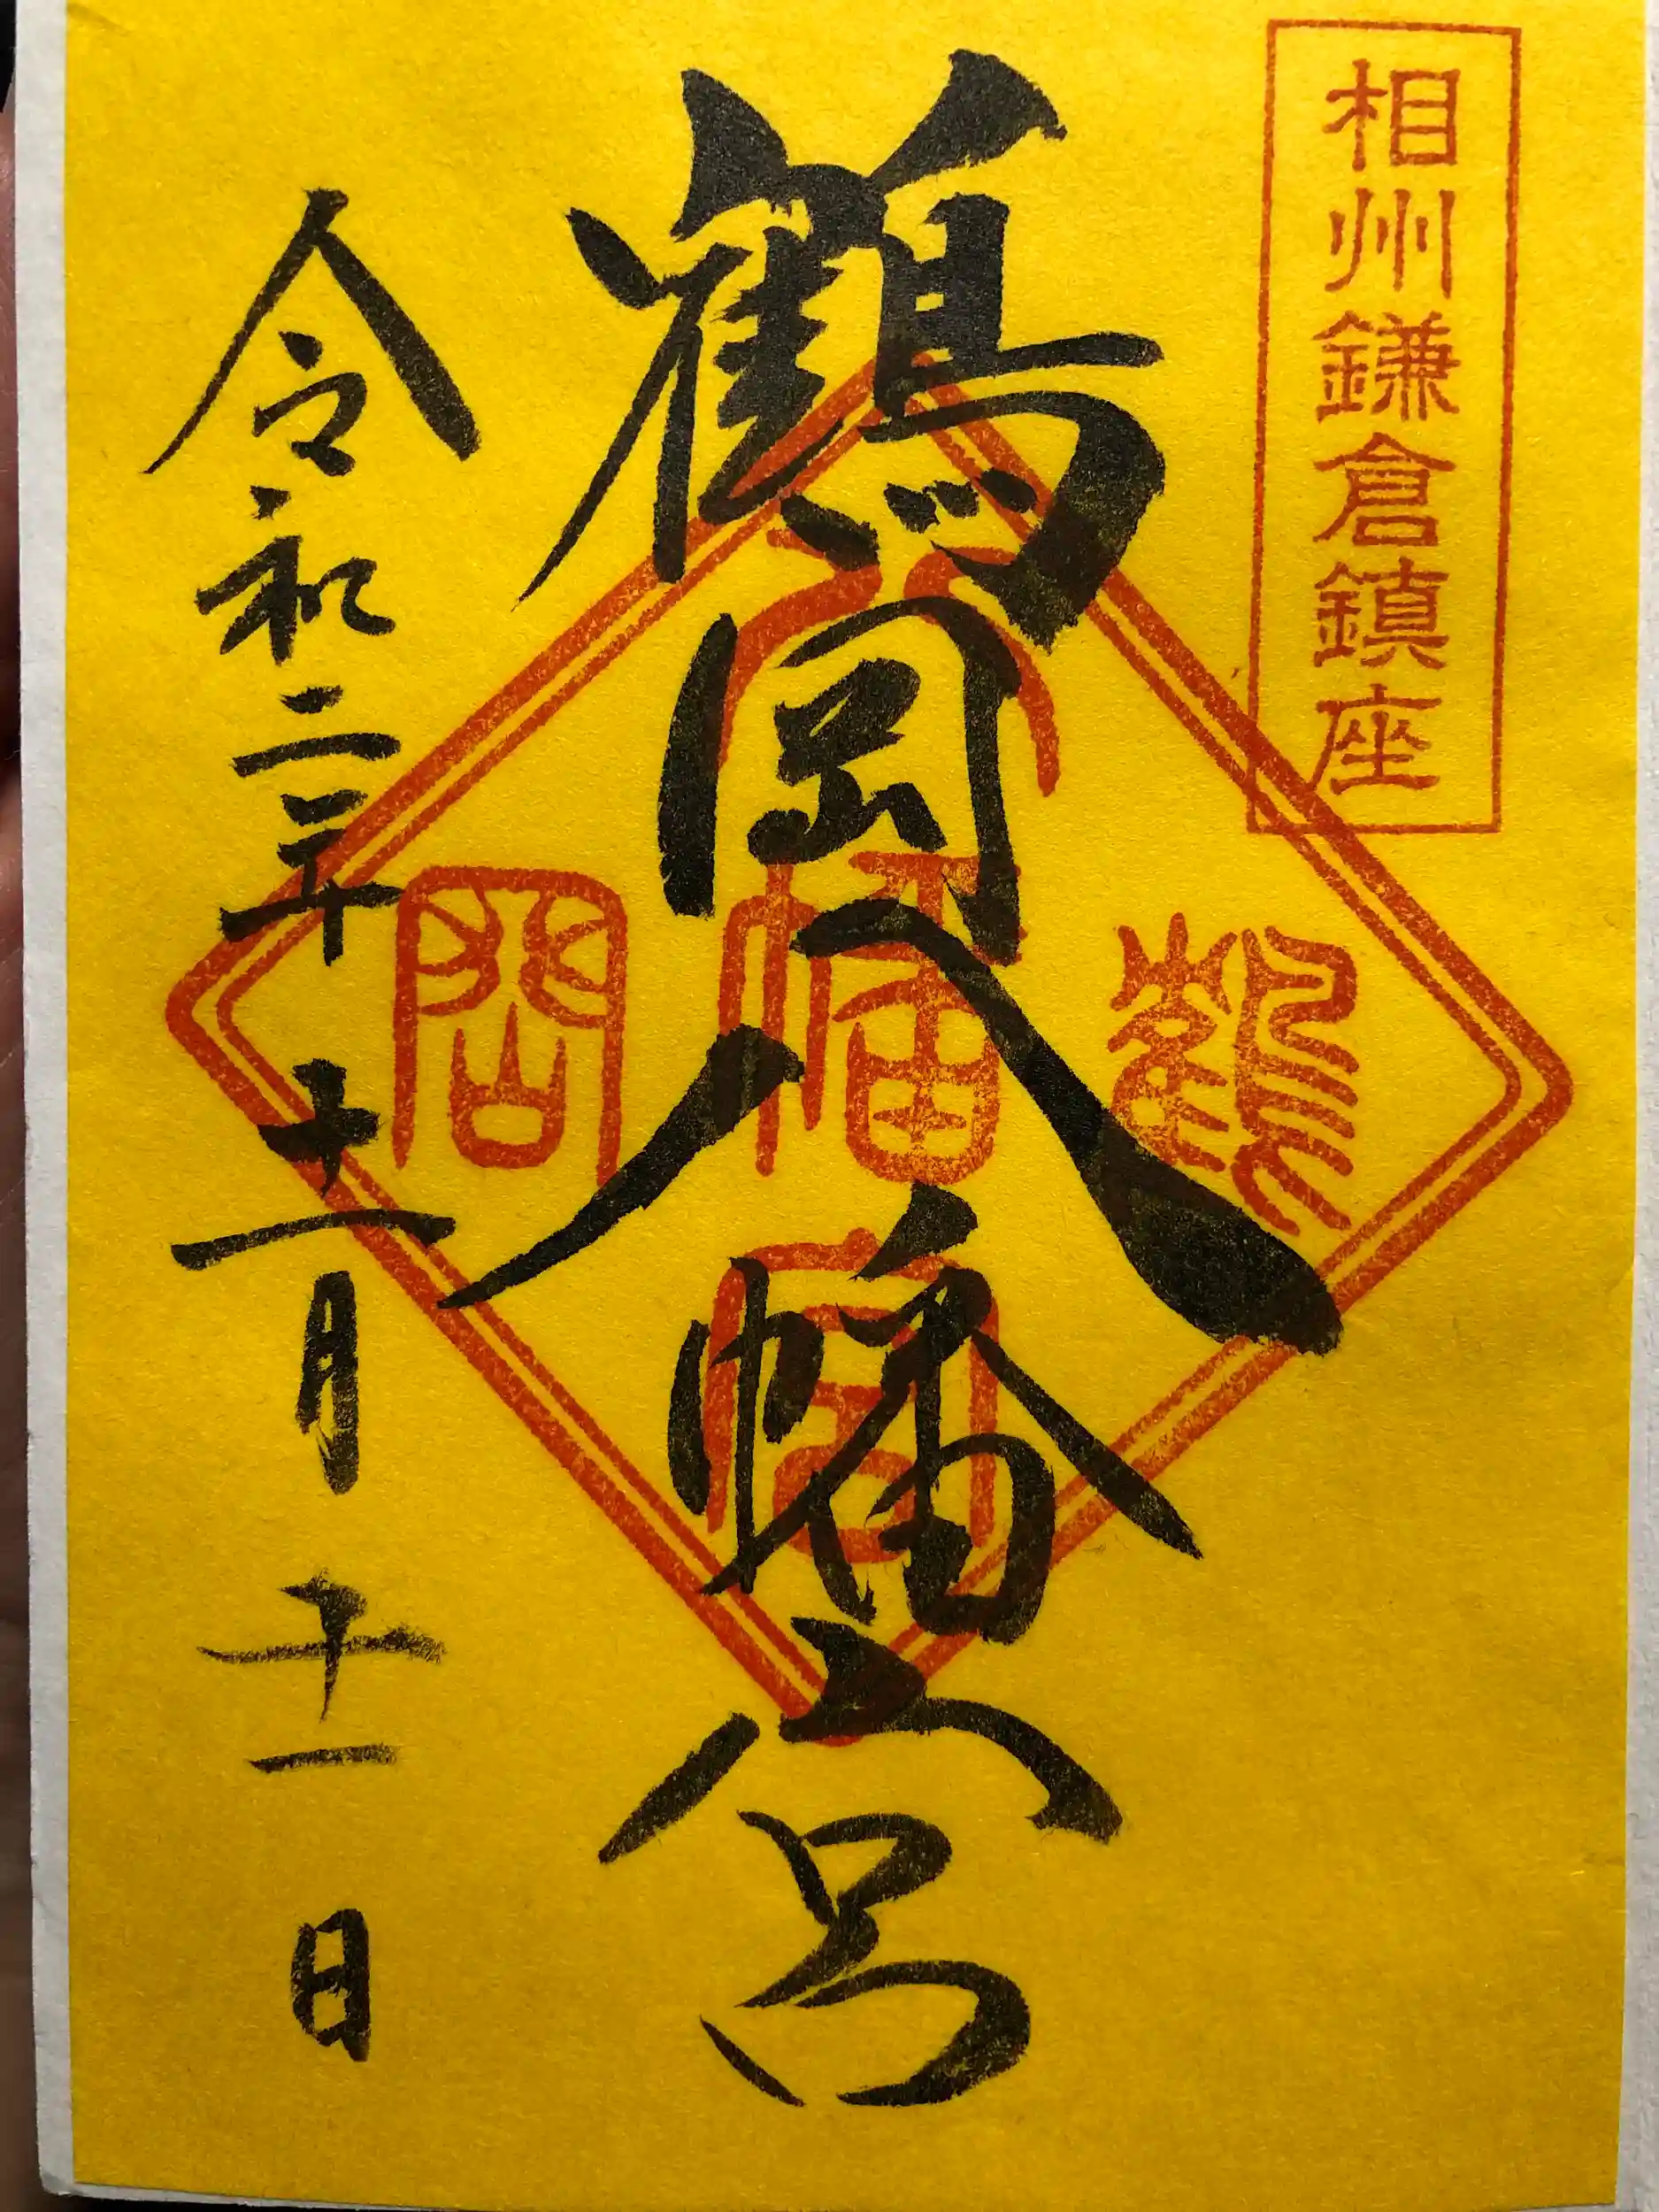 相州鎌倉鎮座
鶴岡八幡宮
令和二年十一月十一日
八
鶴幡岡
宮